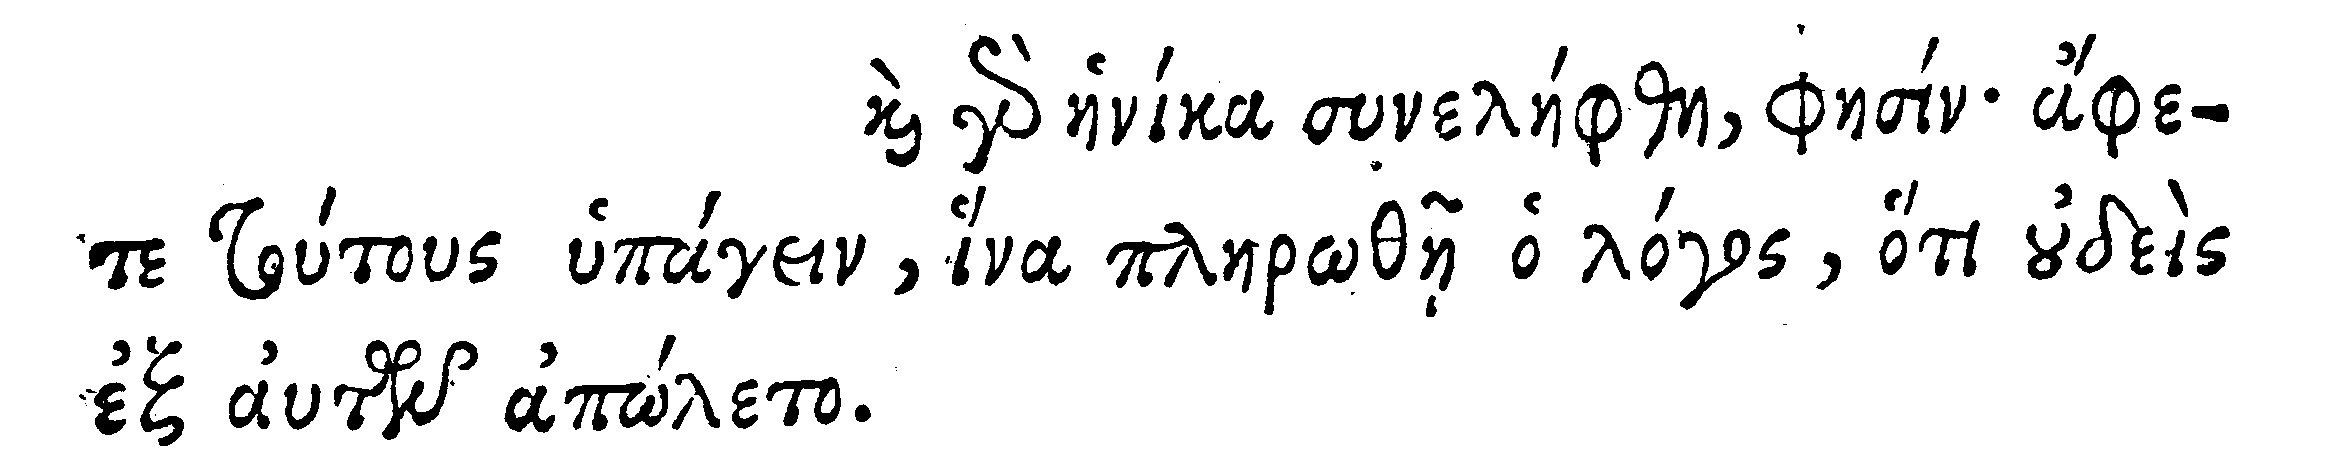 καὶ γὰρ ἡνίκα συνελήφθη, φησίν· ἄφε-
τε τούτους ὑπάγειν, ἵνα πληρωθῇ ὁ λόγος, ὅτι οὐδεὶς
ἐξ αὐτῶν ἀπώλετο.